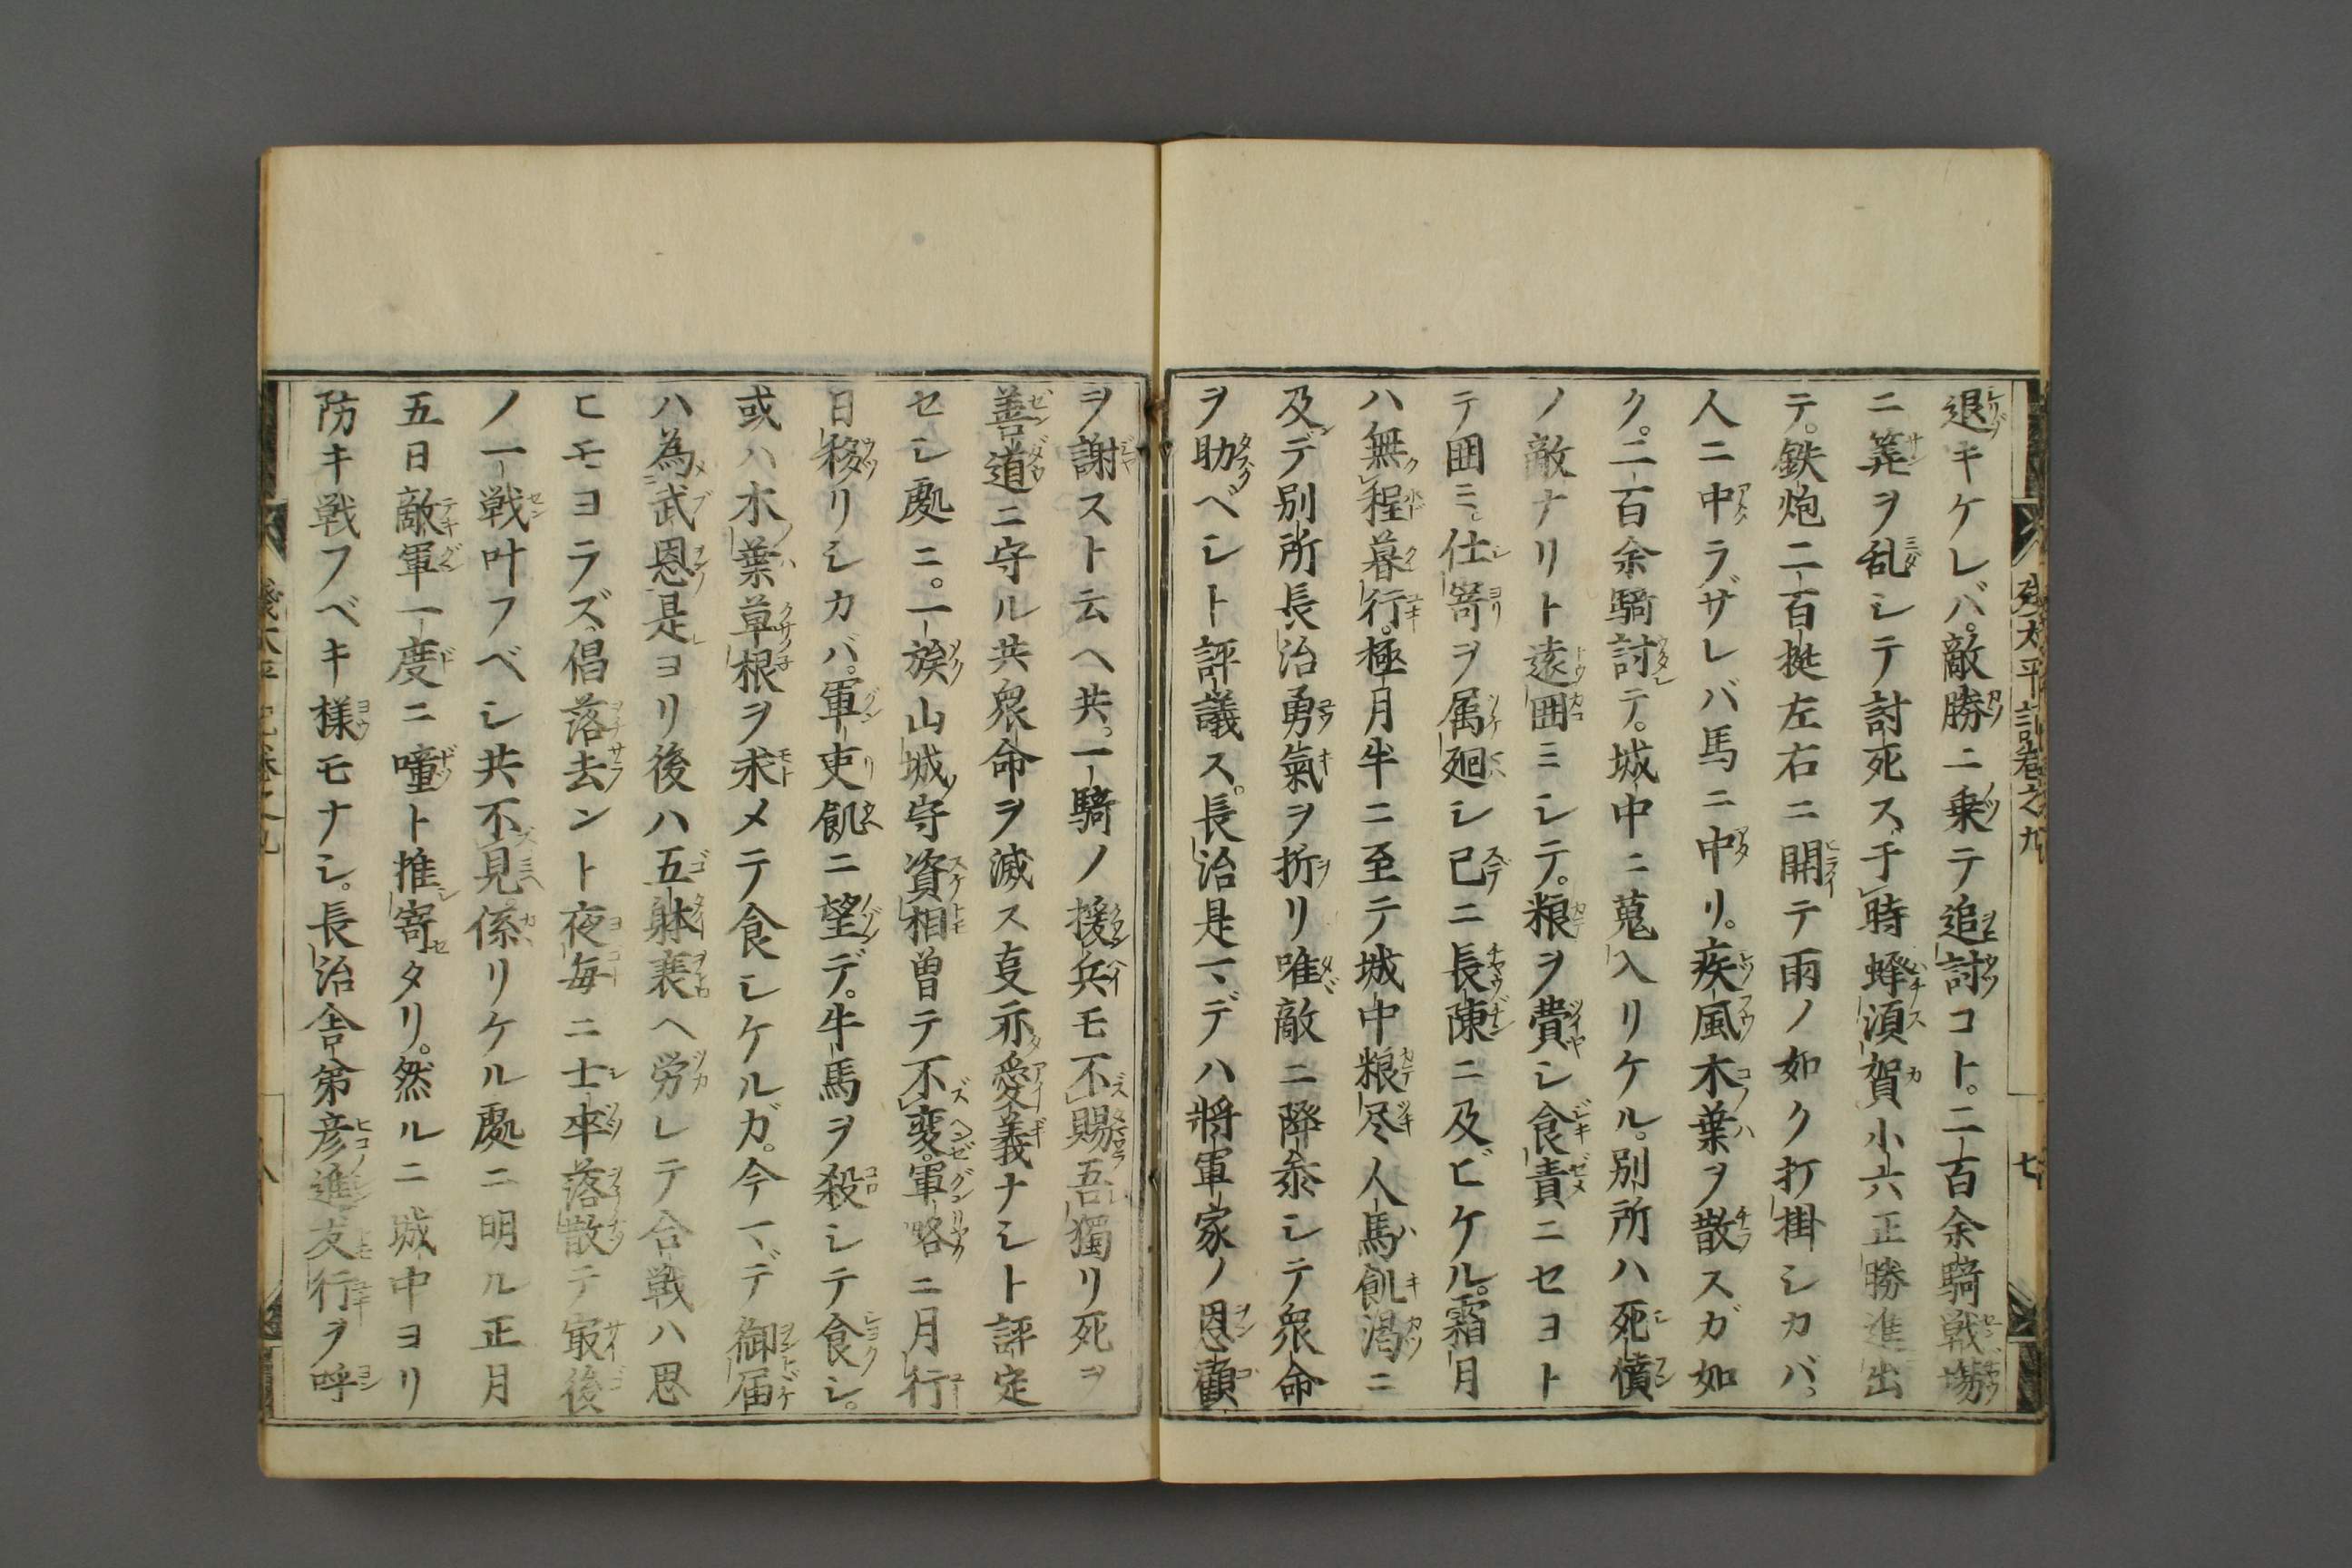 退キケレバ。敵勝ニ乗テ追討コト。二百余騎戦場
ニ筭ヲ乱シテ討死ス、于時蜂須賀小六正勝進出
テ。鉄炮二百挺左右ニ開テ雨ノ如ク打掛シカバ。
人ニ中ラザレバ馬ニ中リ。疾風木葉ヲ散スガ如
ク。二百余騎討テ。城中ニ蒐入リケル。別所ハ死憤
ノ敵ナリト遠囲ミシテ。粮ヲ費シ食責ニセヨト
テ囲ミ、仕寄ヲ属廻シ已ニ長陳ニ及ビケル。霜月
ハ無程暮行。極月半ニ至テ城中粮尽人馬飢渇ニ
及デ別所長治勇氣ヲ折リ唯敵ニ降参シテ衆命
ヲ助ベシト評議ス。長治是マデハ將軍家ノ恩顧
ヲ謝スト云ヘ共。一騎ノ援兵モ不賜吾獨リ死ヲ
善道ニ守ル共衆命ヲ滅ス叓亦愛義ナシト評定
セシ處ニ。一族山城守資相曽テ不変。軍略ニ月行
日移リシカバ。軍吏飢ニ望デ。牛馬ヲ殺シテ食シ。
或ハ木葉草根ヲ求メテ食シケルガ。今マデ御届
ハ為武恩是ヨリ後ハ五躰裵ヘ労レテ合戦ハ思
ヒモヨラズ、倡落去ント夜毎ニ士卒落散テ㝡後
ノ一戦叶フベシ共不見係リケル處ニ明ル正月
五日敵軍一度ニ噇ト推寄タリ。然ルニ城中ヨリ
防キ戦フベキ様モナシ。長治舎弟彦進友行ヲ呼
太平記巻之九
七